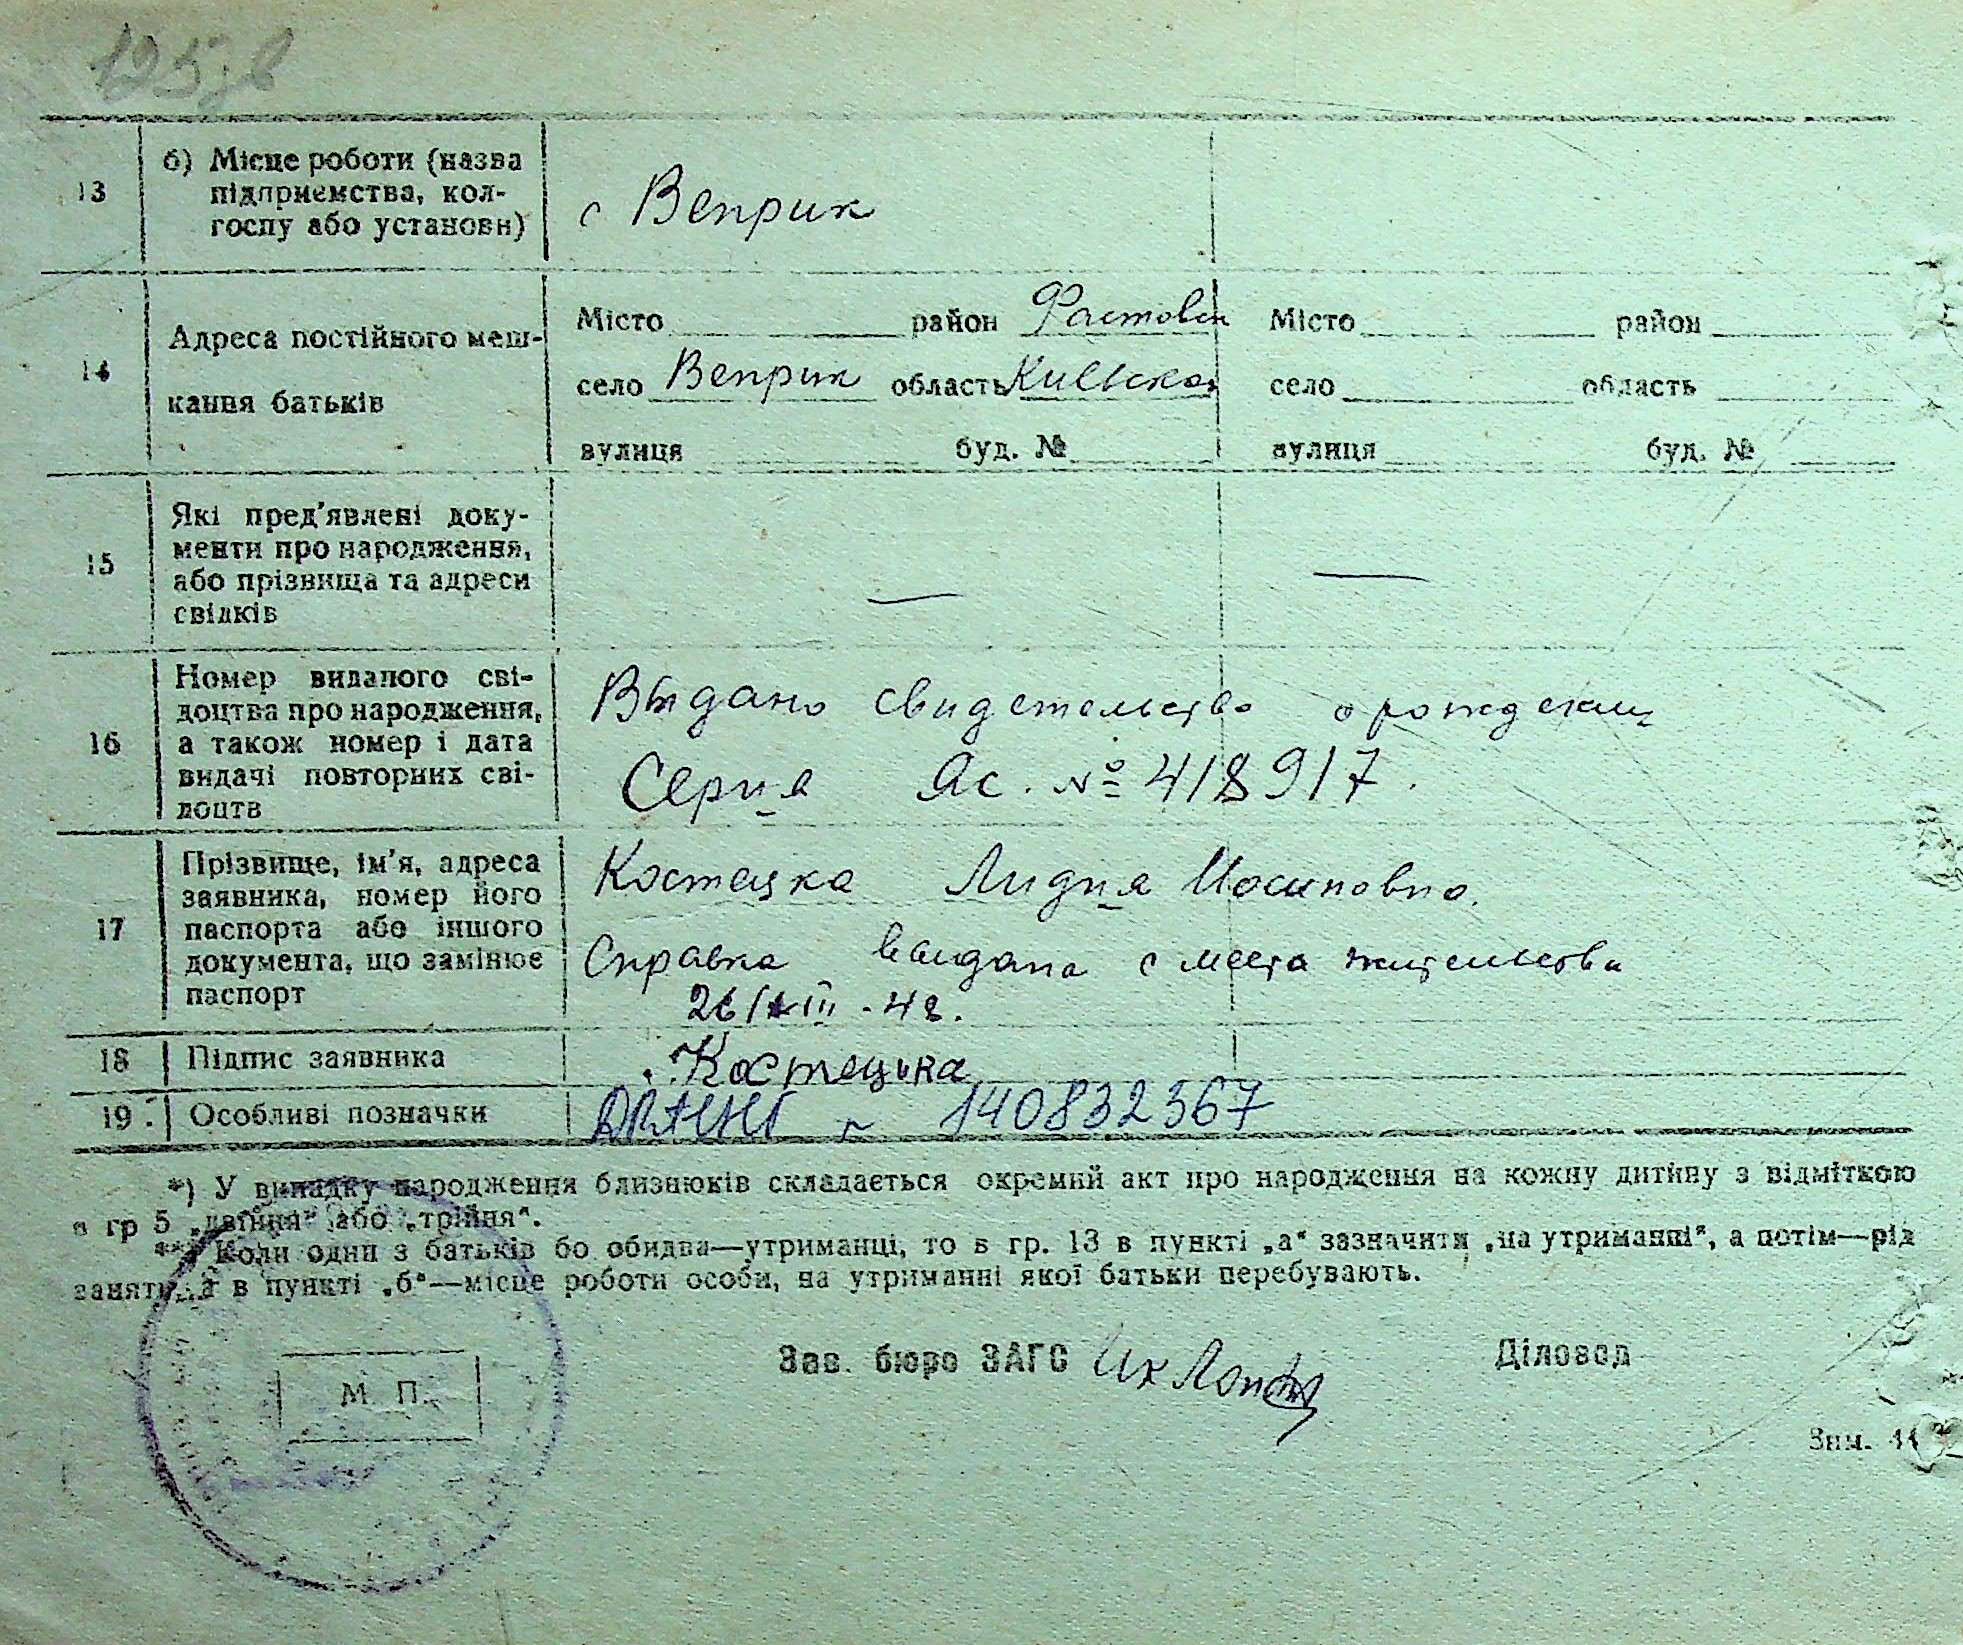 13
б) Місце роботи (назва
підприємства, кол-
госпу або установи)
с Веприк
14
Адреса постійного меш-
кання батьків
Місто район Фастовск
село Веприк область Киевская
вулиця буд. №
Місто район
село область
вулиця буд. №
15
Які пред'явлені доку-
менти про народження,
або прізвища та адреси
свідків
— —
16
Номер виданого сві-
доцтва про народження,
а також номер і дата
видачі повторних сві-
доцтв
Выдано свидетельство о рождении
Серия Яс. № 418917.
17
Прізвище, ім'я, адреса
заявника, номер його
паспорта або іншого
документа, що замінює
паспорт
Костецка Лидия Иосиповна.
Справка выдана с места жительства
26/VIII-48.
18
Підпис заявника
Костецька
19.
Особливі позначки
ДРАЦСГ 140832367
*) У випадку народження близнюків складається окремий акт про народження на кожну дитину з відміткою
в гр 5 „двійня" або „трійня".
**) Коли один з батьків бо обидва—утриманці, то в гр. 13 в пункті „а" зазначити „на утриманні", а потім—рід
занять, а в пункті „б"—місце роботи особи, на утриманні якої батьки перебувають.
Зав. бюро ЗАГС
Діловод
М. П.
Зам.